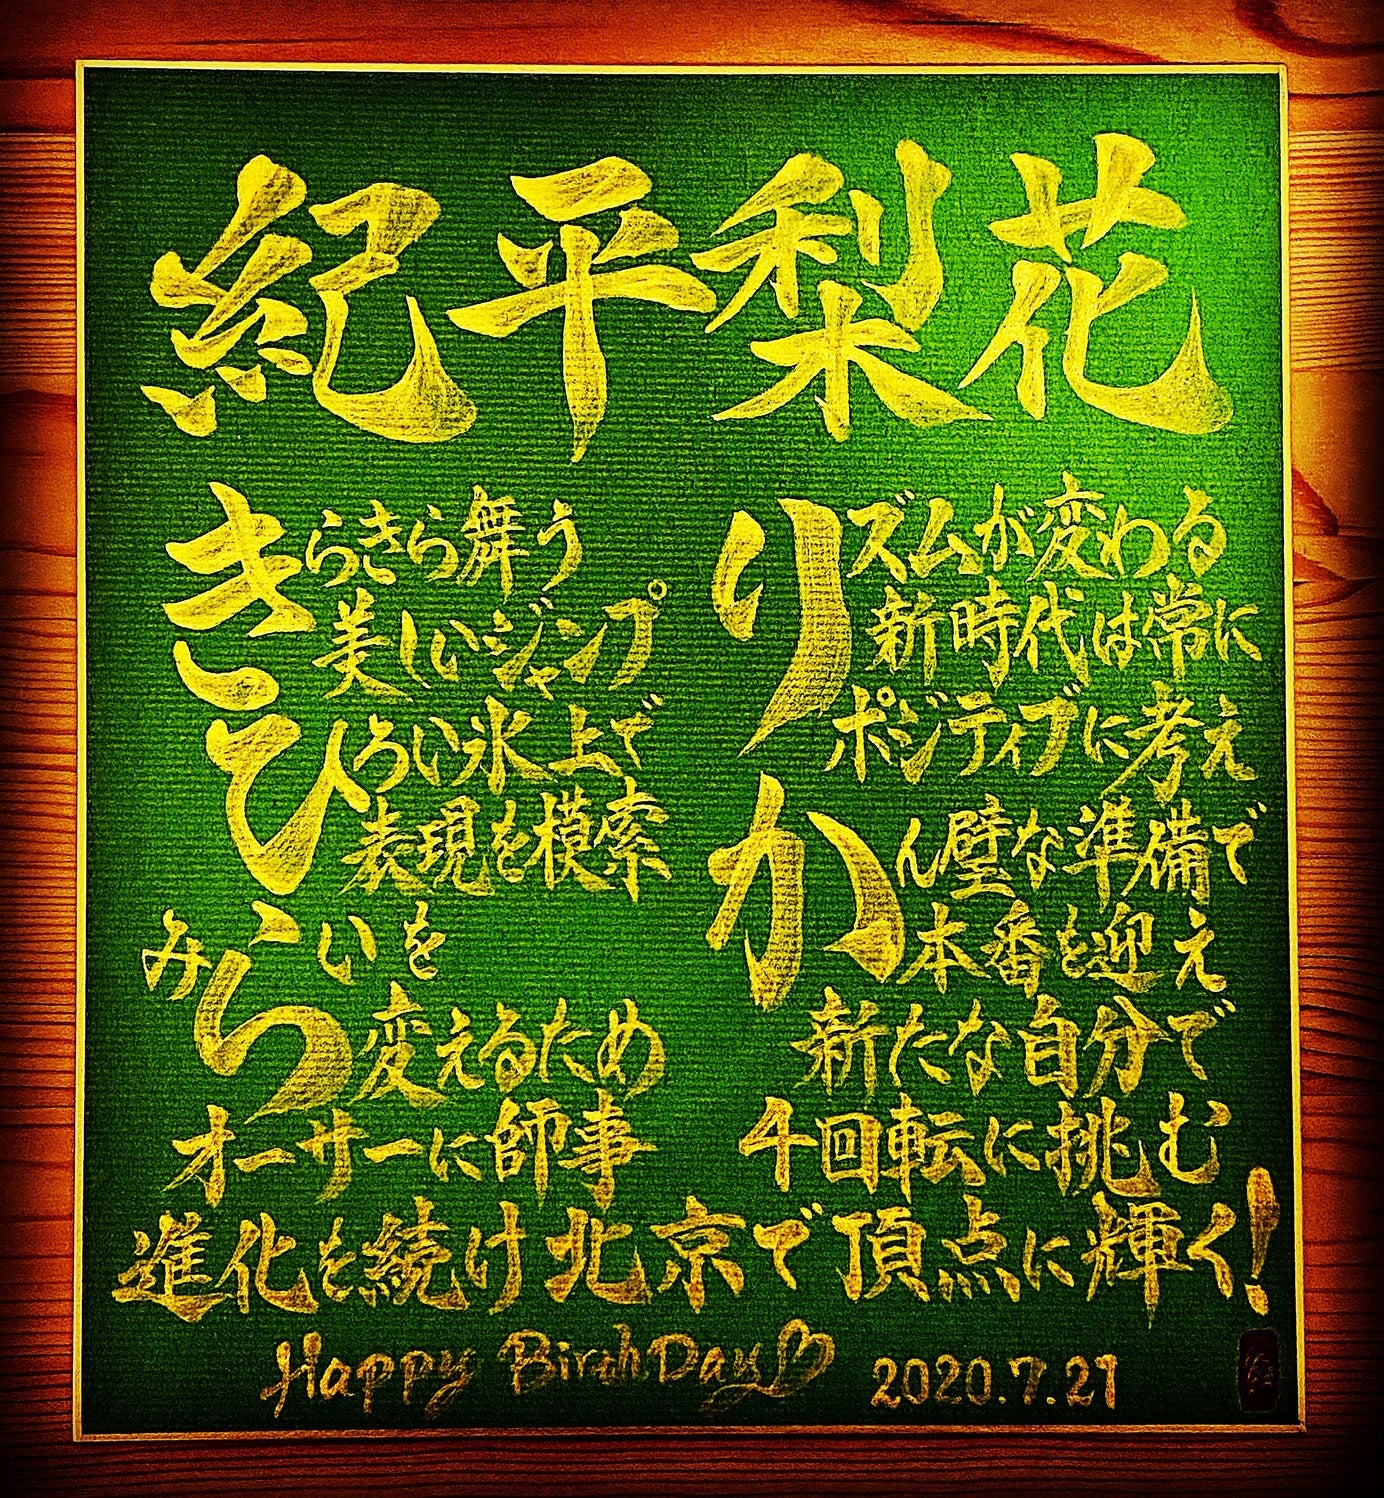 紀平梨花
きらきら舞う
美しいジャンプ
ひろい氷上で
表現を模索
みらいを
変えるため
オーサーに師事
りズムが変わる
新時代は常に
ポジティブに考え
かん璧な準備で
本番を迎え
新たな自分で
4回転に挑む
進化を続け北京で頂点に輝く!
Happy BirthDay♡ 2020.7.21